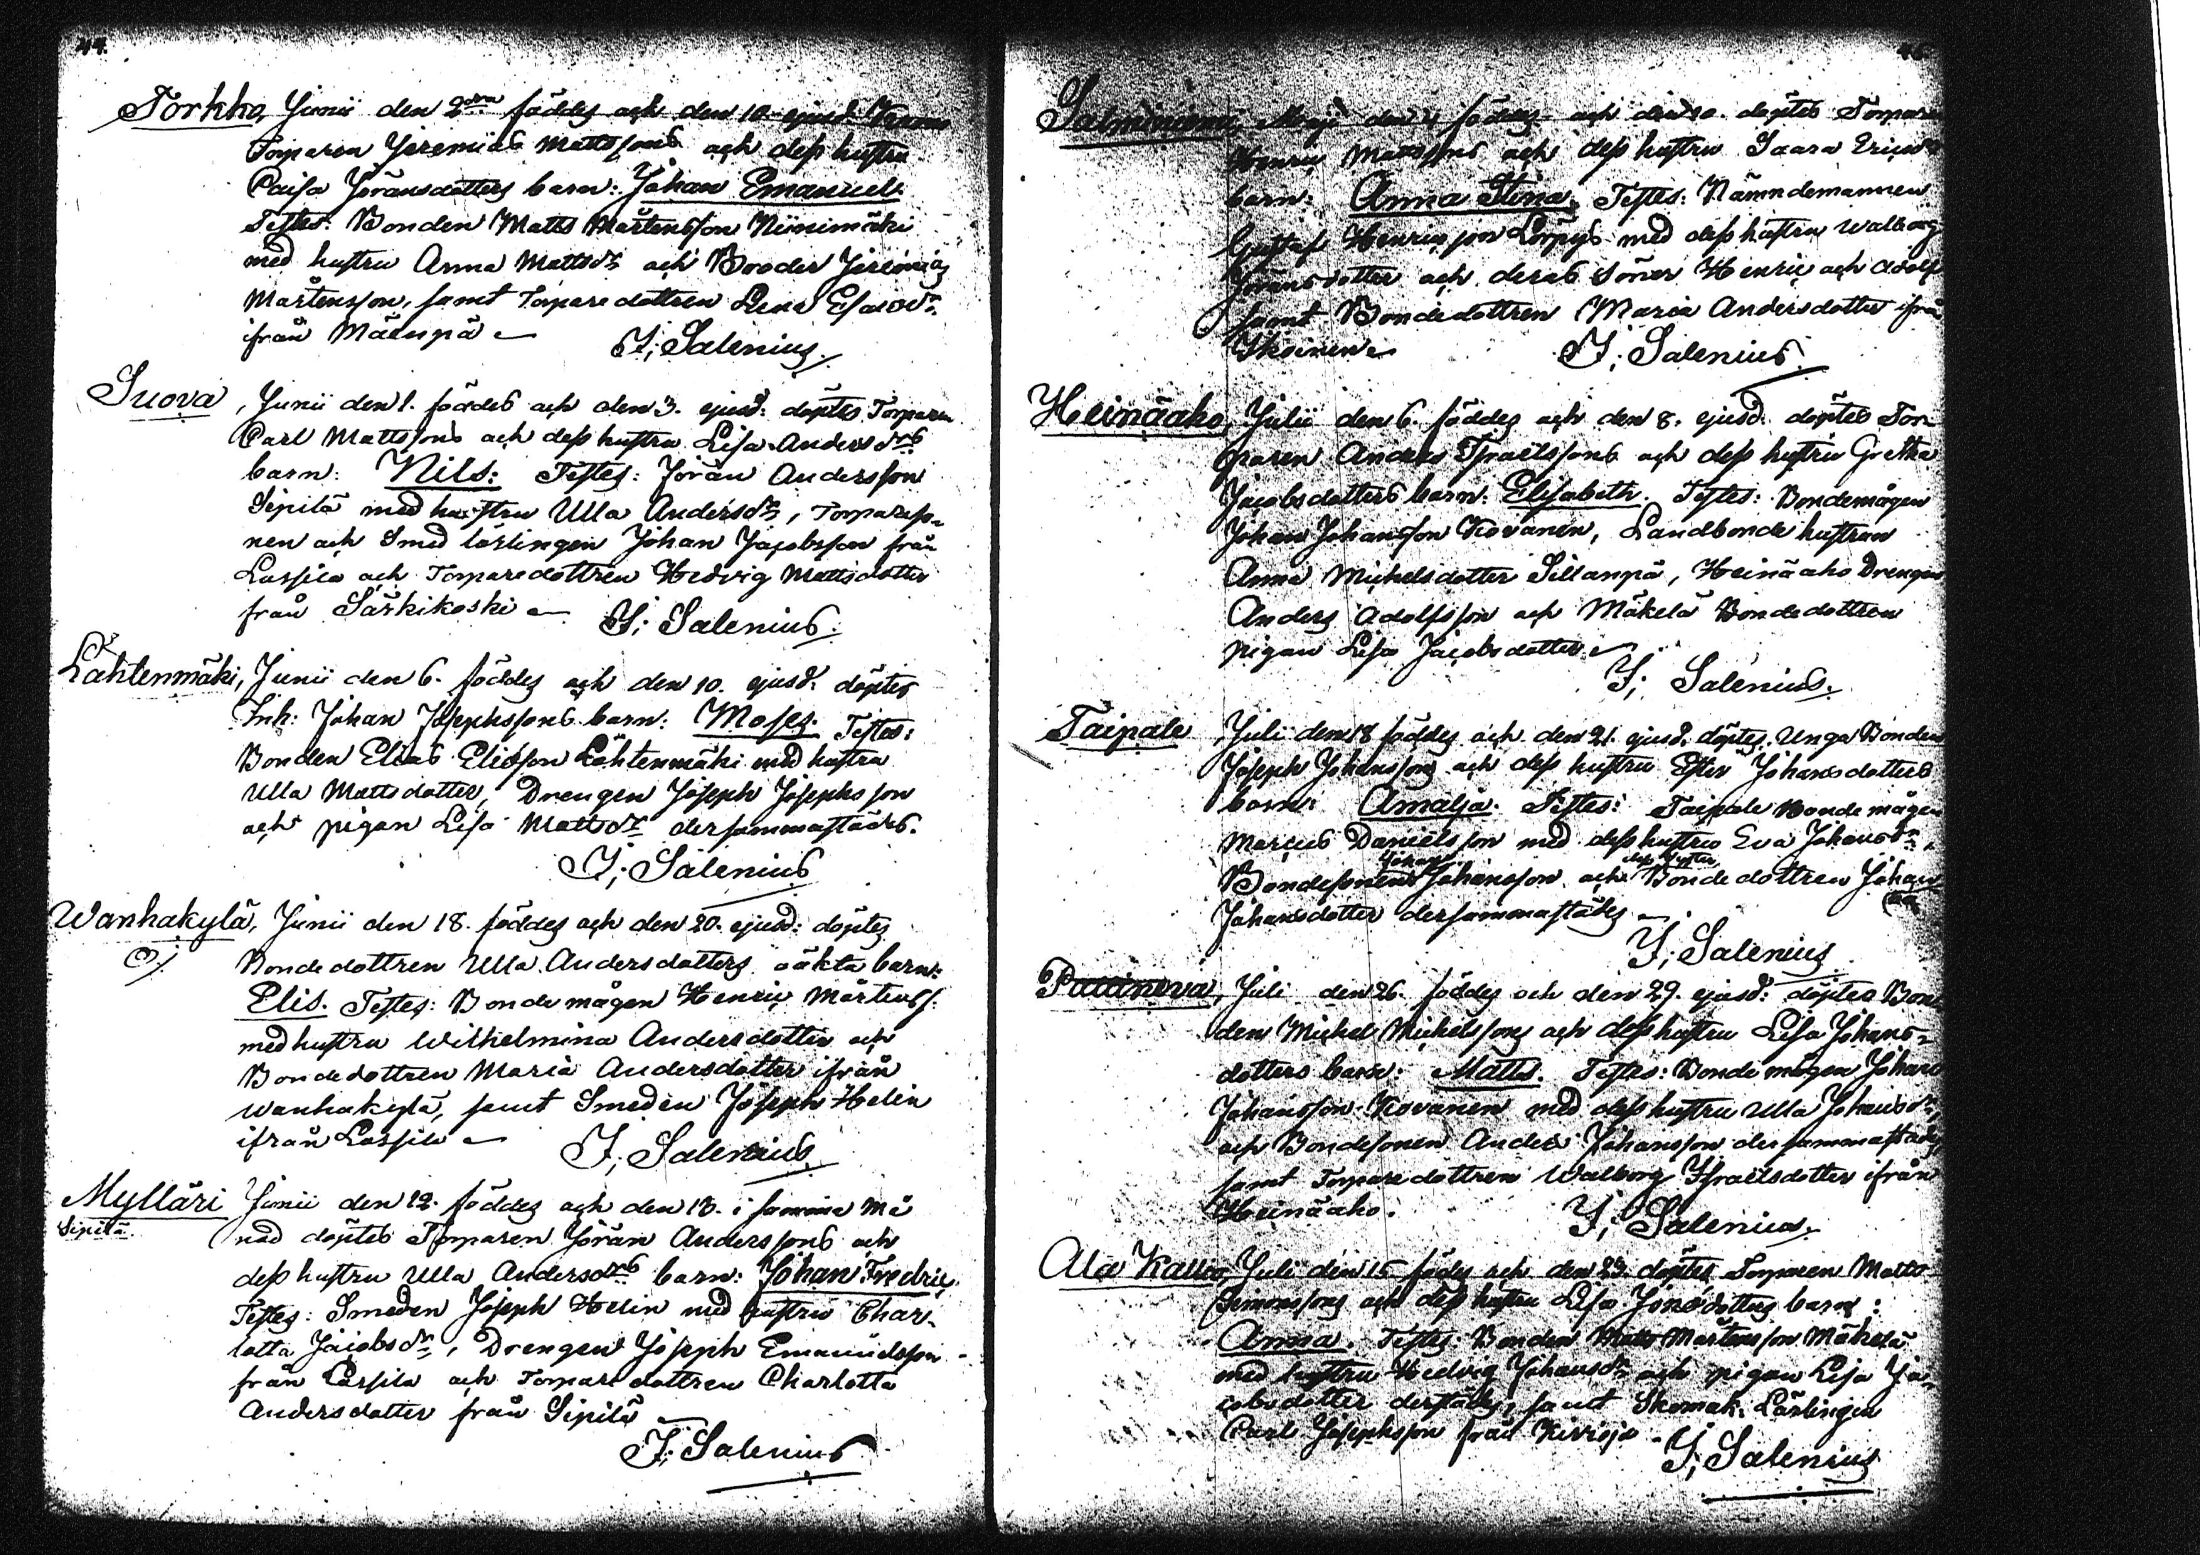 44.
Torkko, Junii den 2dra föddes och den 10 ejusd.
Torparen Jeremias Mattssons och dess hustru
Caisa Jöransdotters barn: Johan Emanuel.
Testes: Bonden Matts Mårtensson Niinimäki
med hustru Anna Mattsdr och Broder Jeremias
Mårtensson, samt Torparedottren Lena Esaiædr
ifrån Mäenpä
I; Salenius.
Suova, Junii den 1. föddes och den 3. ejusd: döptes Torparen
Carl Mattssons och dess hustru Lisa Andersdrs
barn: Nils: Testes: Jöran Andersson
Sipilä med hustru Ulla Andersdr, Torpareso-
nen och Smed lärlingen Johan Jacobsson från
Lassila och Torparedottren Hedvig Mattsdotter
från Särkikoski
I; Salenius.
Lähtenmäki, Junii den 6. föddes och den 10. ejusd: döptes
Inh: Johan Josephssons barn: Moses. Testes:
Bonden Elias Eliasson Lähtenmäki med hustru
Ulla Mattsdotter, Drengen Joseph Josephsson
och pigan Lisa Mattsdr dersammastädes.
I; Salenius
Wanhakylä, Junii den 18. föddes och den 20. ejusd: döptes
Bondedottren Ulla Andersdotters oäkta barn:
Elis. Testes: Bondemågen Henric Mårtenss:
med hustru Wilhelmina Andersdotter och
Bondedottren Maria Andersdotter ifrån
Wanhakylä, samt Smeden Joseph Helin
ifrån Lassila
I; Salenius
Mylläri Junii den 12. föddes och den 18. i samma Må
Sipilä.
nad döptes Torparen Jöran Anderssons och
dess hustru Ulla Andersdrs barn: Johan Fredric.
Testes: Smeden Joseph Helin med hustru Char-
lotta Jacobsdr, Drengen Joseph Emanuelsson
från Lassila och Torparedottren Charlotta
Andersdotter från Sipilä
I; Salenius
45
Maji den föddes och den 10. döptes Torparen
Henric Mattssons och dess hustru Saara Ericsdrs
barn: Anna Stina. Testes: Nämndemannen
Gustaf Henricsson Lörpys med dess hustru Walborg
Jöransdotter och deras Söner Henric och Adolf
samt Bondedottren Maria Andersdotter ifrån
Ikoinen
I; Salenius.
Heinäaho, Julii den 6. föddes och den 8. ejusd. döptes Tor-
paren Anders Israëlssons och dess hustru Gretha
Jacobsdotters barn: Elisabeth. Testes: Bondemågen
Johan Johansson Kovanen, Landbonde hustrun
Anna Michelsdotter Sillanpä, Heinäaho Drengen
Anders Adolfsson och Mäkelä Bondedottren
pigan Lisa Jacobsdotter.
I; Salenius.
Taipale, Juli den 18 föddes och den 21. ejusd. döptes Unga Bonden
Joseph Johanssons och dess hustru Ester Johansdotters
barn: Amalja. Testes: Taipale Bondemågen
Marcus Danielsson med dess hustru Eva Johansdr,
Bondesonen Johan Johansson och dess hustru Bondedottren Johan
na
Johansdotter dersammastädes
I; Salenius
Juli den 26. föddes och den 29. ejusd: döptes Bon
den Michel Michelssons och dess hustru Lisa Johans-
dotters barn: Matts. Testes: Bondemågen Johan
Johansson Kovanen med dess hustru Ulla Johansdr,
och Bondesonen Anders Johansson dersammastädes
samt Torparedottren Walborg Israëlsdotter ifrån
Heinäaho.
I; Salenius.
Ala Kallio, Juli den 15 föddes och den 23. döptes Torparen Matts
Simonssons och dess hustru Lisa Jönsdotters barn:
Anna. Testes: Bonden Matts Mårtensson Mäkelä
med hustru Hedvig Johansdr och pigan Lisa Ja-
cobsdotter derstädes, samt Skomak. Lärlingen
Carl Josephsson från Kirrioja
I; Salenius